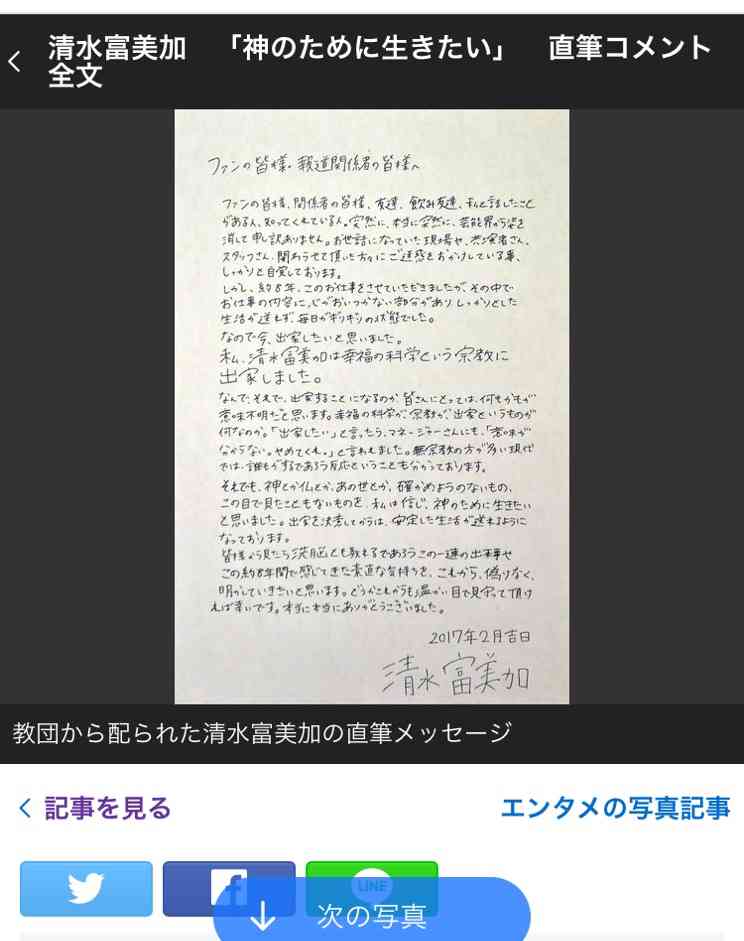 清水富美加 「神のために生きたい」 直筆コメント
全文
ファンの皆様、報道関係者の皆様へ
ファンの皆様、関係者の皆様、友達、飲み友達、私と話したこと
がある人、知ってくれている人。突然に、本当に突然に、芸能界から姿を
消して申し訳ありません。お世話になっていた現場や、共演者さん、
スタッフさん、関わらせて頂いた方々にご迷惑をおかけしている事、
しっかりと自覚しております。
しかし、約8年、このお仕事をさせていただきましたが、その中で
お仕事の内容に、心がおいつかない部分があり しっかりとした
生活が送れず、毎日がギリギリの状態でした。
なので今、出家したいと思いました。
私、清水富美加は幸福の科学という宗教に
出家しました。
なんで、それで、出家することになるのか 皆さんにとっては、何もかもが
意味不明だと思います。幸福の科学が、宗教が、出家というものが
何なのか。「出家したい」と言ったら、マネージャーさんにも、「意味が
分からない。やめてくれ。」と言われました。無宗教の方が多い現代
では、誰もがするであろう反応ということも分かっております。
それでも、神とか仏とか、あの世とか、確かめようのないもの、
この目で見たこともないものを、私は信じ、神のために生きたい
と思いました。出家を決意してからは、安定した生活が送れるように
なっております。
皆様から見たら洗脳とも取れるであろうこの一連の出来事や
この約8年間で感じてきた素直な気持ちを、これから、偽りなく、
明かしていきたいと思います。どうかこれからも温かい目で見守って頂け
れば幸いです。本当に本当にありがとうございました。
2017年2月吉日
清水富美加
教団から配られた清水富美加の直筆メッセージ
記事を見る
エンタメの写真記事
LINE
次の写真